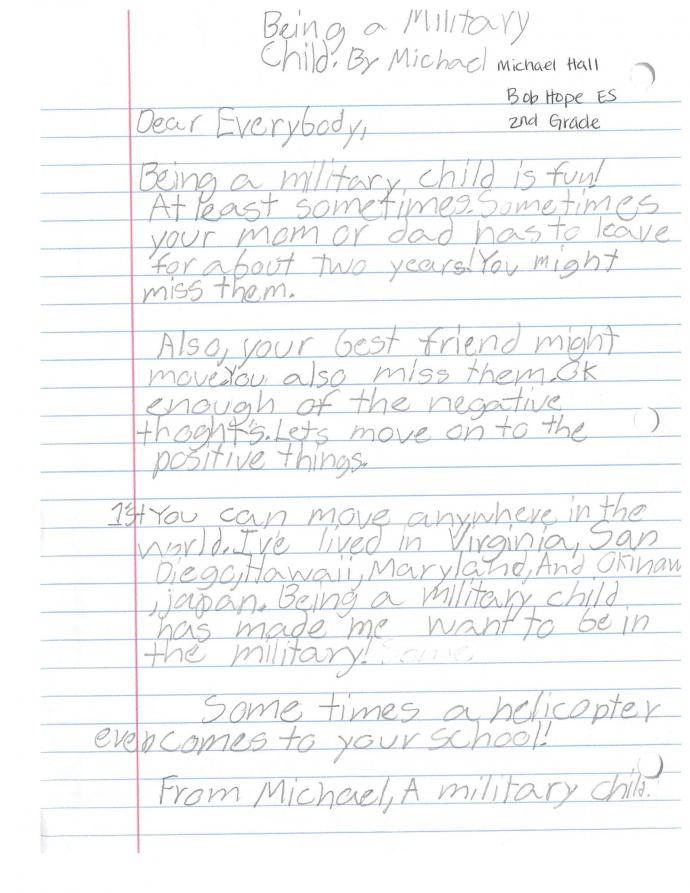 Being a Military
Child. By Michael Michael Hall
Bob Hope ES
2nd Grade
Dear Everybody,
Being a military child is fun!
At least sometimes. Sometimes
your mom or dad has to leave
for about two years! You might
miss them.
Also, your best friend might
move. You also miss them. Ok
enough of the negative
thoghts. Lets move on to the
positive things.
1st You can move anywhere in the
world. I've lived in Virginia, San
Diego, Hawaii, Maryland, And Okinaw
, japan. Being a military child
has made me want to be in
the military! Some
Some times a helicopter
even comes to your school!
From Michael, A military child.